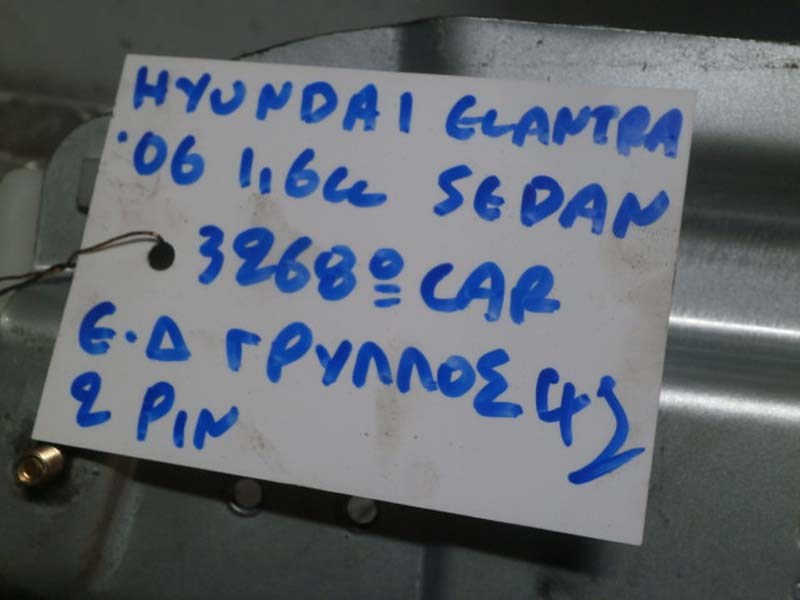 HYUNDAI ELANTRA
'06 1,6cc SEDAN
3268º CAR
Ε.Δ ΓΡΥΛΛΟΣ 42
2 PIN